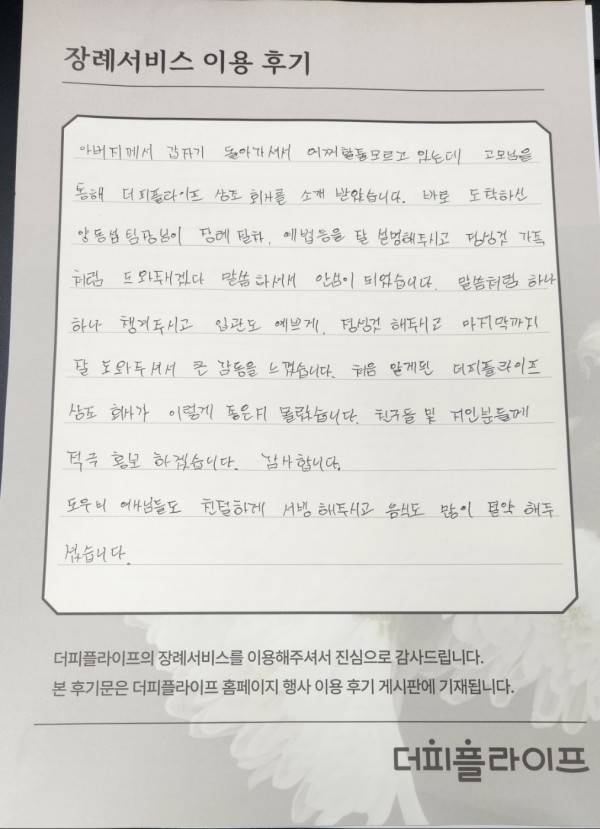 장례서비스 이용 후기
아버지께서 갑자기 돌아가셔서 어찌할줄모르고 있는데 고모님을
통해 더피플라이프 상조 회사를 소개 받았습니다. 바로 도착하신
양동섭팀장님이 장례 절차, 예법등을 잘 설명해주시고 정성껏 가족
처럼 도와주겠다 말씀 하셔서 안심이 되었습니다. 말씀처럼 하나
하나 챙겨주시고 입관도 예쁘게, 정성껏 해주시고 마지막까지
잘 도와주셔서 큰 감동을 느꼈습니다. 처음 알게된 더피플라이프
상조 회사가 이렇게 좋은지 몰랐습니다. 친구들 및 지인분들께
적극 홍보 하겠습니다. 감사합니다.
도우미 여사님들도 친절하게 서빙 해주시고 음식도 많이 절약 해주
셨습니다.
더피플라이프의 장례서비스를 이용해주셔서 진심으로 감사드립니다.
본 후기문은 더피플라이프 홈페이지 행사 이용 후기 게시판에 기재됩니다.
더피플라이프